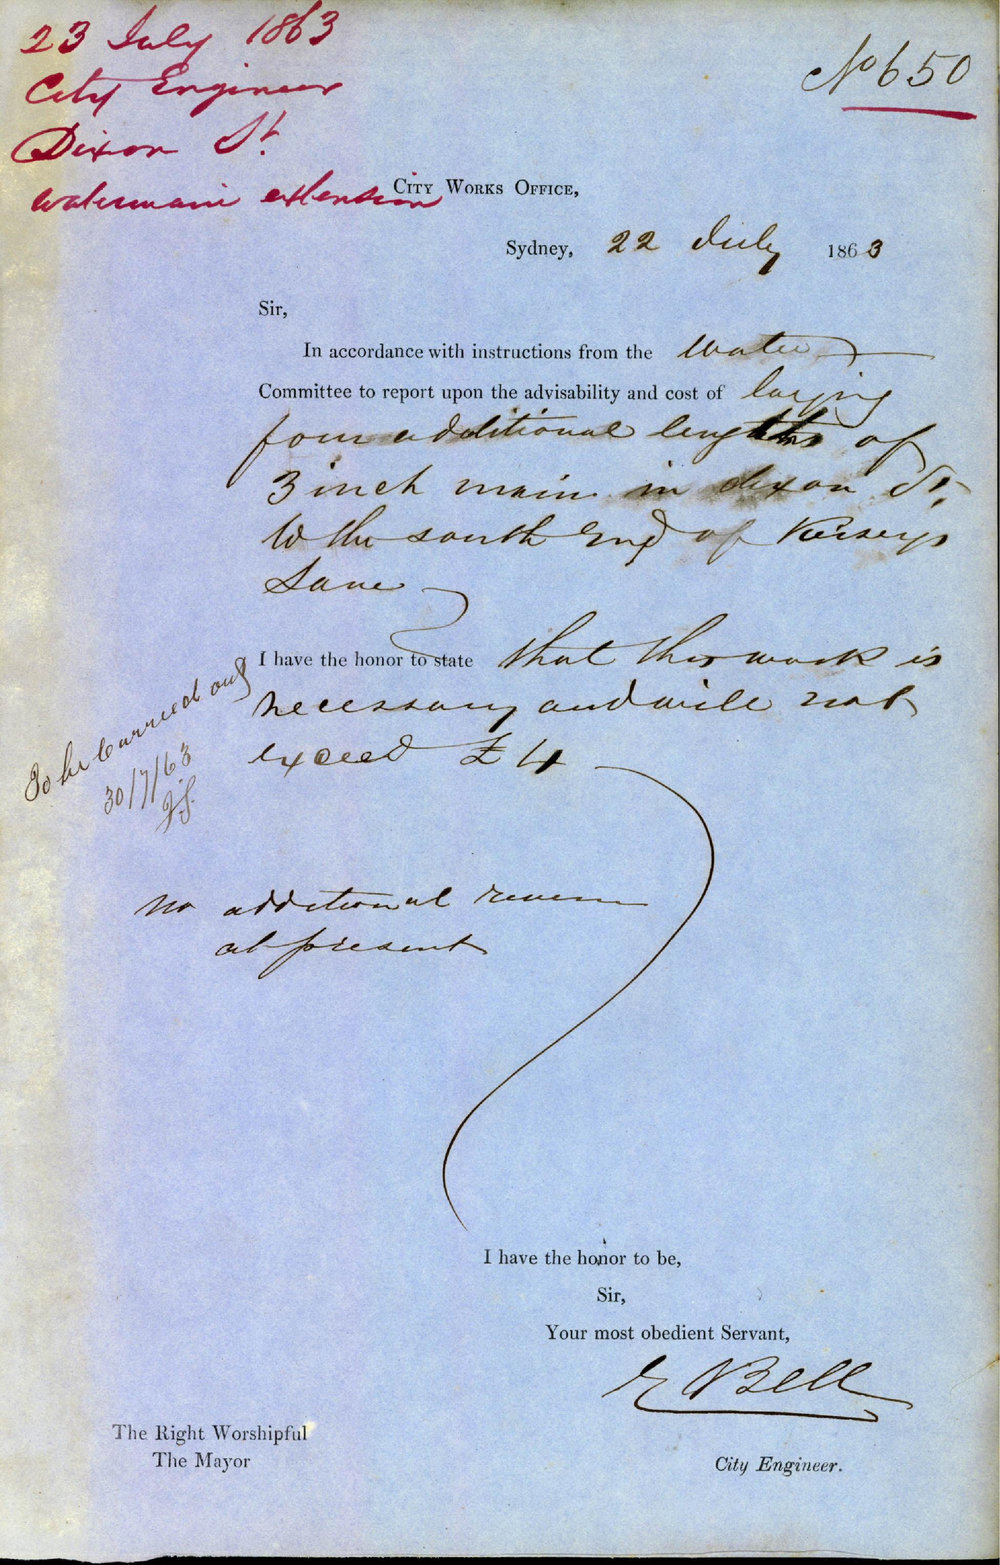 23 July 1863
City Engineer
Dixon St.
watermain extension
No 650
City Works Office,
Sydney, 22 July 1863
Sir,
In accordance with instructions from the Water
Committee to report upon the advisability and cost of laying
four additional lengths of
3 inch main in dixon St.
to the south End of Kersey's
Lane
I have the honor to state that this work is
necessary and will not
exceed £4
To be Carried out
30/7/63
no additional revenue
at present
I have the honor to be,
Sir,
Your most obedient Servant,
E Bell
The Right Worshipful
The Mayor
City Engineer.